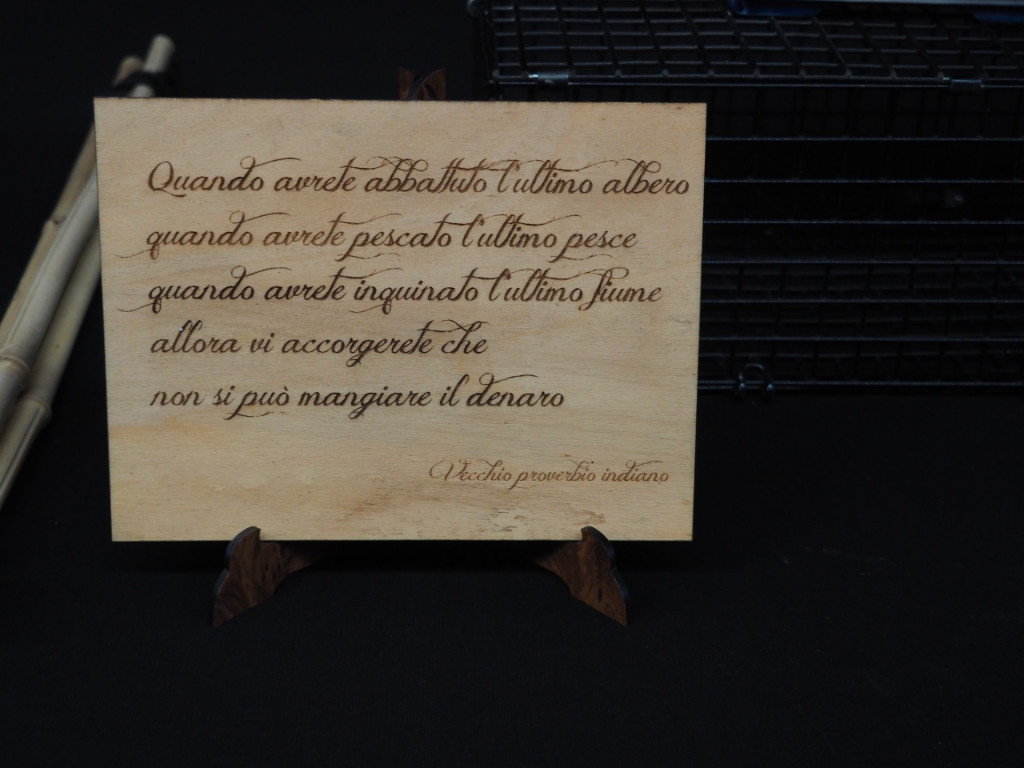 Quando avrete abbattuto l'ultimo albero
quando avrete pescato l'ultimo pesce
quando avrete inquinato l'ultimo fiume
allora vi accorgerete che
non si può mangiare il denaro
Vecchio proverbio indiano